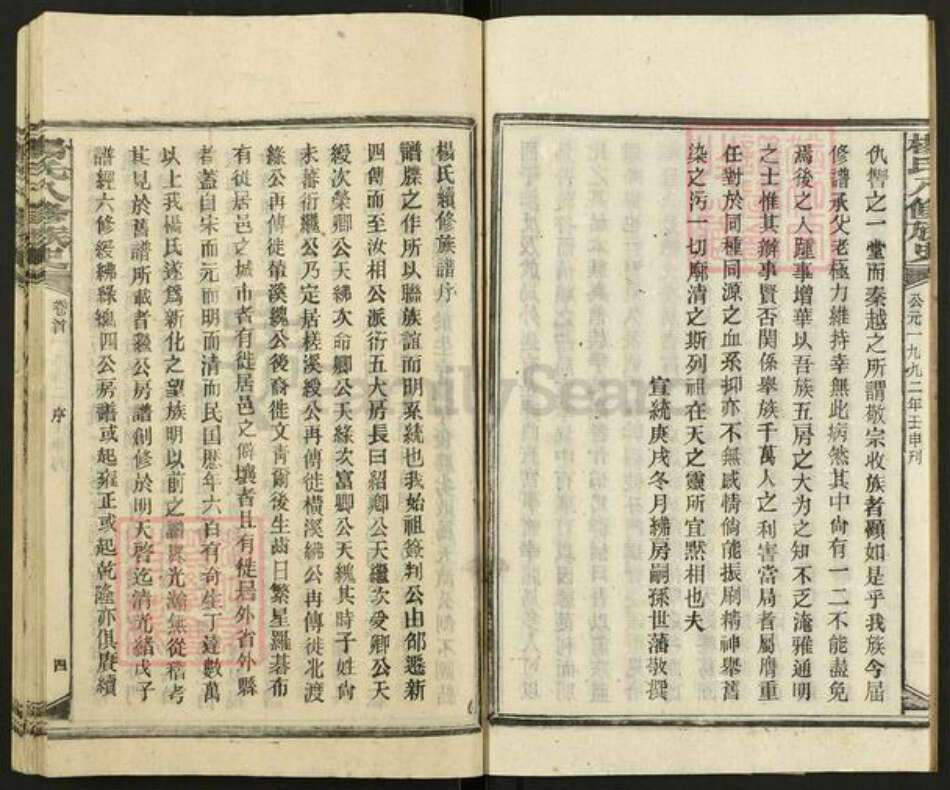 楊氏八修族史
公元一九九二年壬申刊
仇讐之一堂而秦越之所謂敬宗收族者顧如是乎我族今屆
修譜承父老極力維持幸無此病然其中尙有一二不能盡免
焉後之人踵事增華以吾族五房之大为之知不乏淹雅通明
之士惟其辦事賢否関係舉族千萬人之利害當局者屬膺重
任對於同種同源之血系抑亦不無感情倘能振刷精神舉舊
染之污一切廓清之斯列祖在天之靈所宜默相也夫
宣統庚戌冬月紼房嗣孫世藩敬撰
楊氏續修族譜序
譜牒之作所以聯族誼而明系統也我始祖簽判公由邵遷新
四傳而至汝相公派衍五大房長曰紹卿公天繼次愛卿公天
綬次榮卿公天紼次命卿公天緣次富卿公天緽其時子姓尙
未蕃衍繼公乃定居槎溪綬公再傳徙橫溪紼公再傳徙北渡
緣公再傳徙
溪
公後裔徙文靑爾後生齒日繁星羅碁布
有徙居邑之城市者有徙居邑之僻壤者且有徙居外省外縣
者蓋自宋而元而明而清而民国歷年六百有奇生丁達數萬
以上我楊氏遂爲新化之望族明以前之
光瀚無從稽考
其見於舊譜所載者繼公房譜創修於明天啓迄清光緒戊子
譜經六修綬紼緣
四公房譜或起雍正或起乾隆亦俱賡續
楊氏八修族史
卷首
序
四
FamilySearch